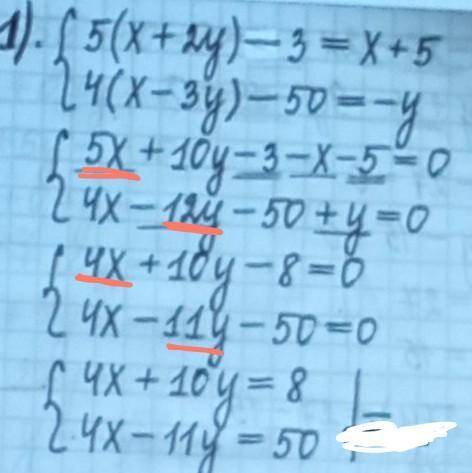 1). { 5(x + 2y) - 3 = x + 5
4(x - 3y) - 50 = -y
{ 5x + 10y - 3 - x - 5 = 0
4x - 12y - 50 + y = 0
{ 4x + 10y - 8 = 0
4x - 11y - 50 = 0
{ 4x + 10y = 8
4x - 11y = 50 | -